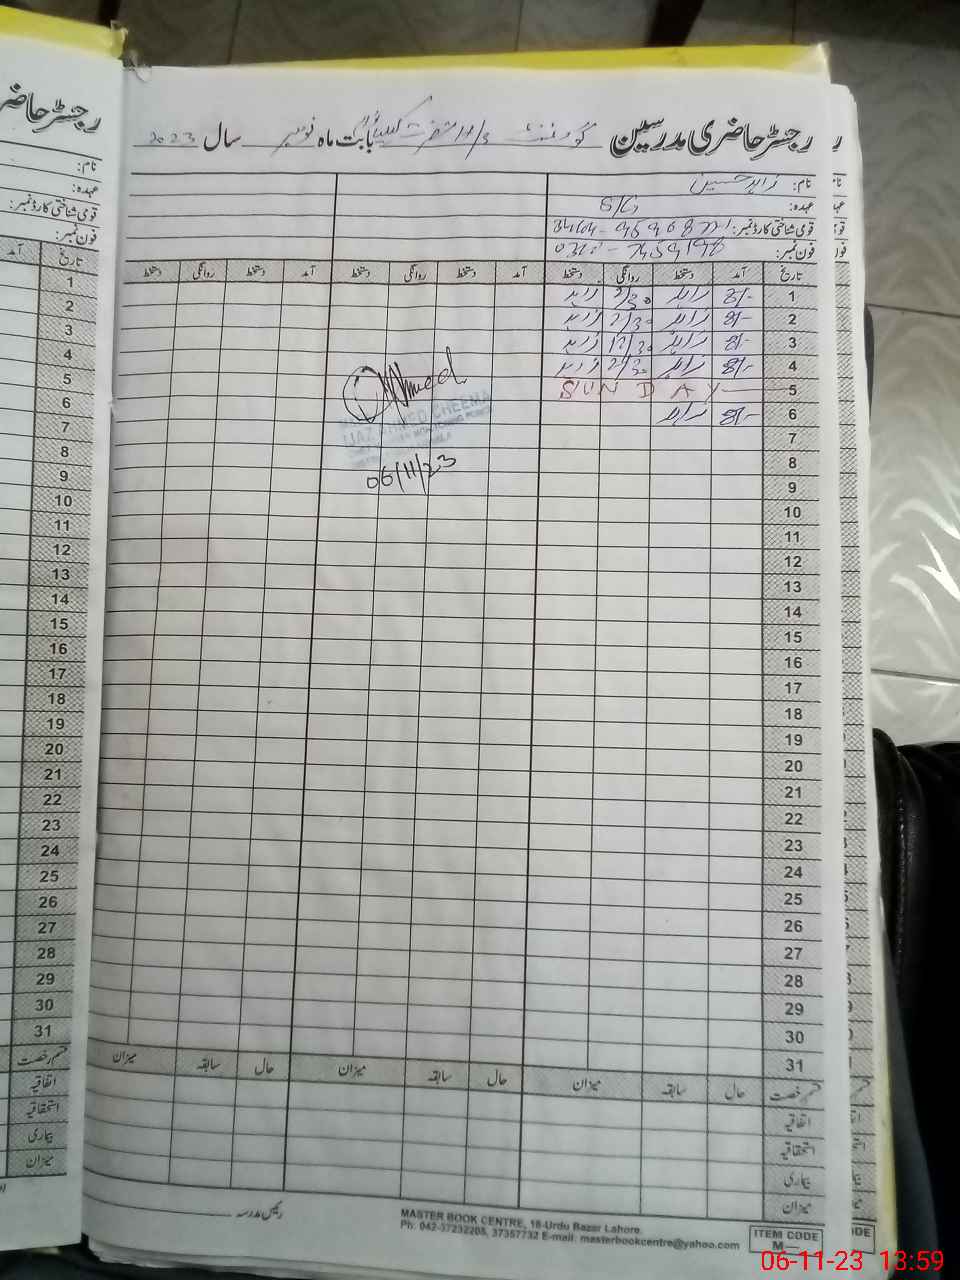 رجسٹر حاضری مدرسین گورنمنٹ بابت ماہ نومبر سال 2023
نام: زاہد حسین
عہدہ: S/G
قومی شناختی کارڈ نمبر:
فون نمبر:
تاریخ آمد دستخط روانگی دستخط آمد دستخط روانگی دستخط آمد دستخط روانگی دستخط
1 8/- زاہد 2/30 زاہد
2 8/- زاہد 2/30 زاہد
3 8/- زاہد 12/30 زاہد
4 8/- زاہد 2/30 زاہد
5 SUNDAY
6 8/- زاہد
Ahmed
IJAZ AHMED CHEEMA
06/11/23
7
8
9
10
11
12
13
14
15
16
17
18
19
20
21
22
23
24
25
26
27
28
29
30
31
قسم رخصت حال سابقہ میزان حال سابقہ میزان حال سابقہ میزان
اتفاقیہ
استحقاقیہ
بیماری
میزان
رئیس مدرسہ
MASTER BOOK CENTRE, 18-Urdu Bazar Lahore.
Ph: 042-37232205, 37357732 E-mail: masterbookcentre@yahoo.com
ITEM CODE
M—
رجسٹر حاضری
نام:
عہدہ:
قومی شناختی کارڈ نمبر:
فون نمبر:
تاریخ آمد
1
2
3
4
5
6
7
8
9
10
11
12
13
14
15
16
17
18
19
20
21
22
23
24
25
26
27
28
29
30
31
قسم رخصت
اتفاقیہ
استحقاقیہ
بیماری
میزان
06-11-23 13:59